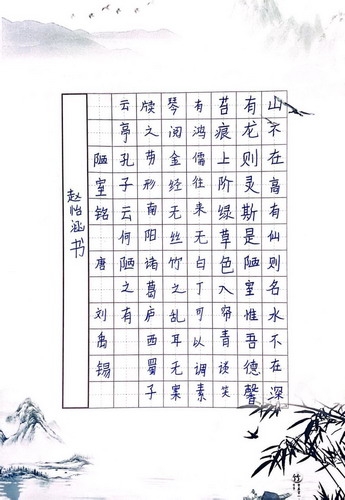 山不在高有仙则名水不在深
有龙则灵斯是陋室惟吾德馨
苔痕上阶绿草色入帘青谈笑
有鸿儒往来无白丁可以调素
琴阅金经无丝竹之乱耳无案
牍之劳形南阳诸葛庐西蜀子
云亭孔子云何陋之有
陋室铭 唐 刘禹锡
赵怡涵书